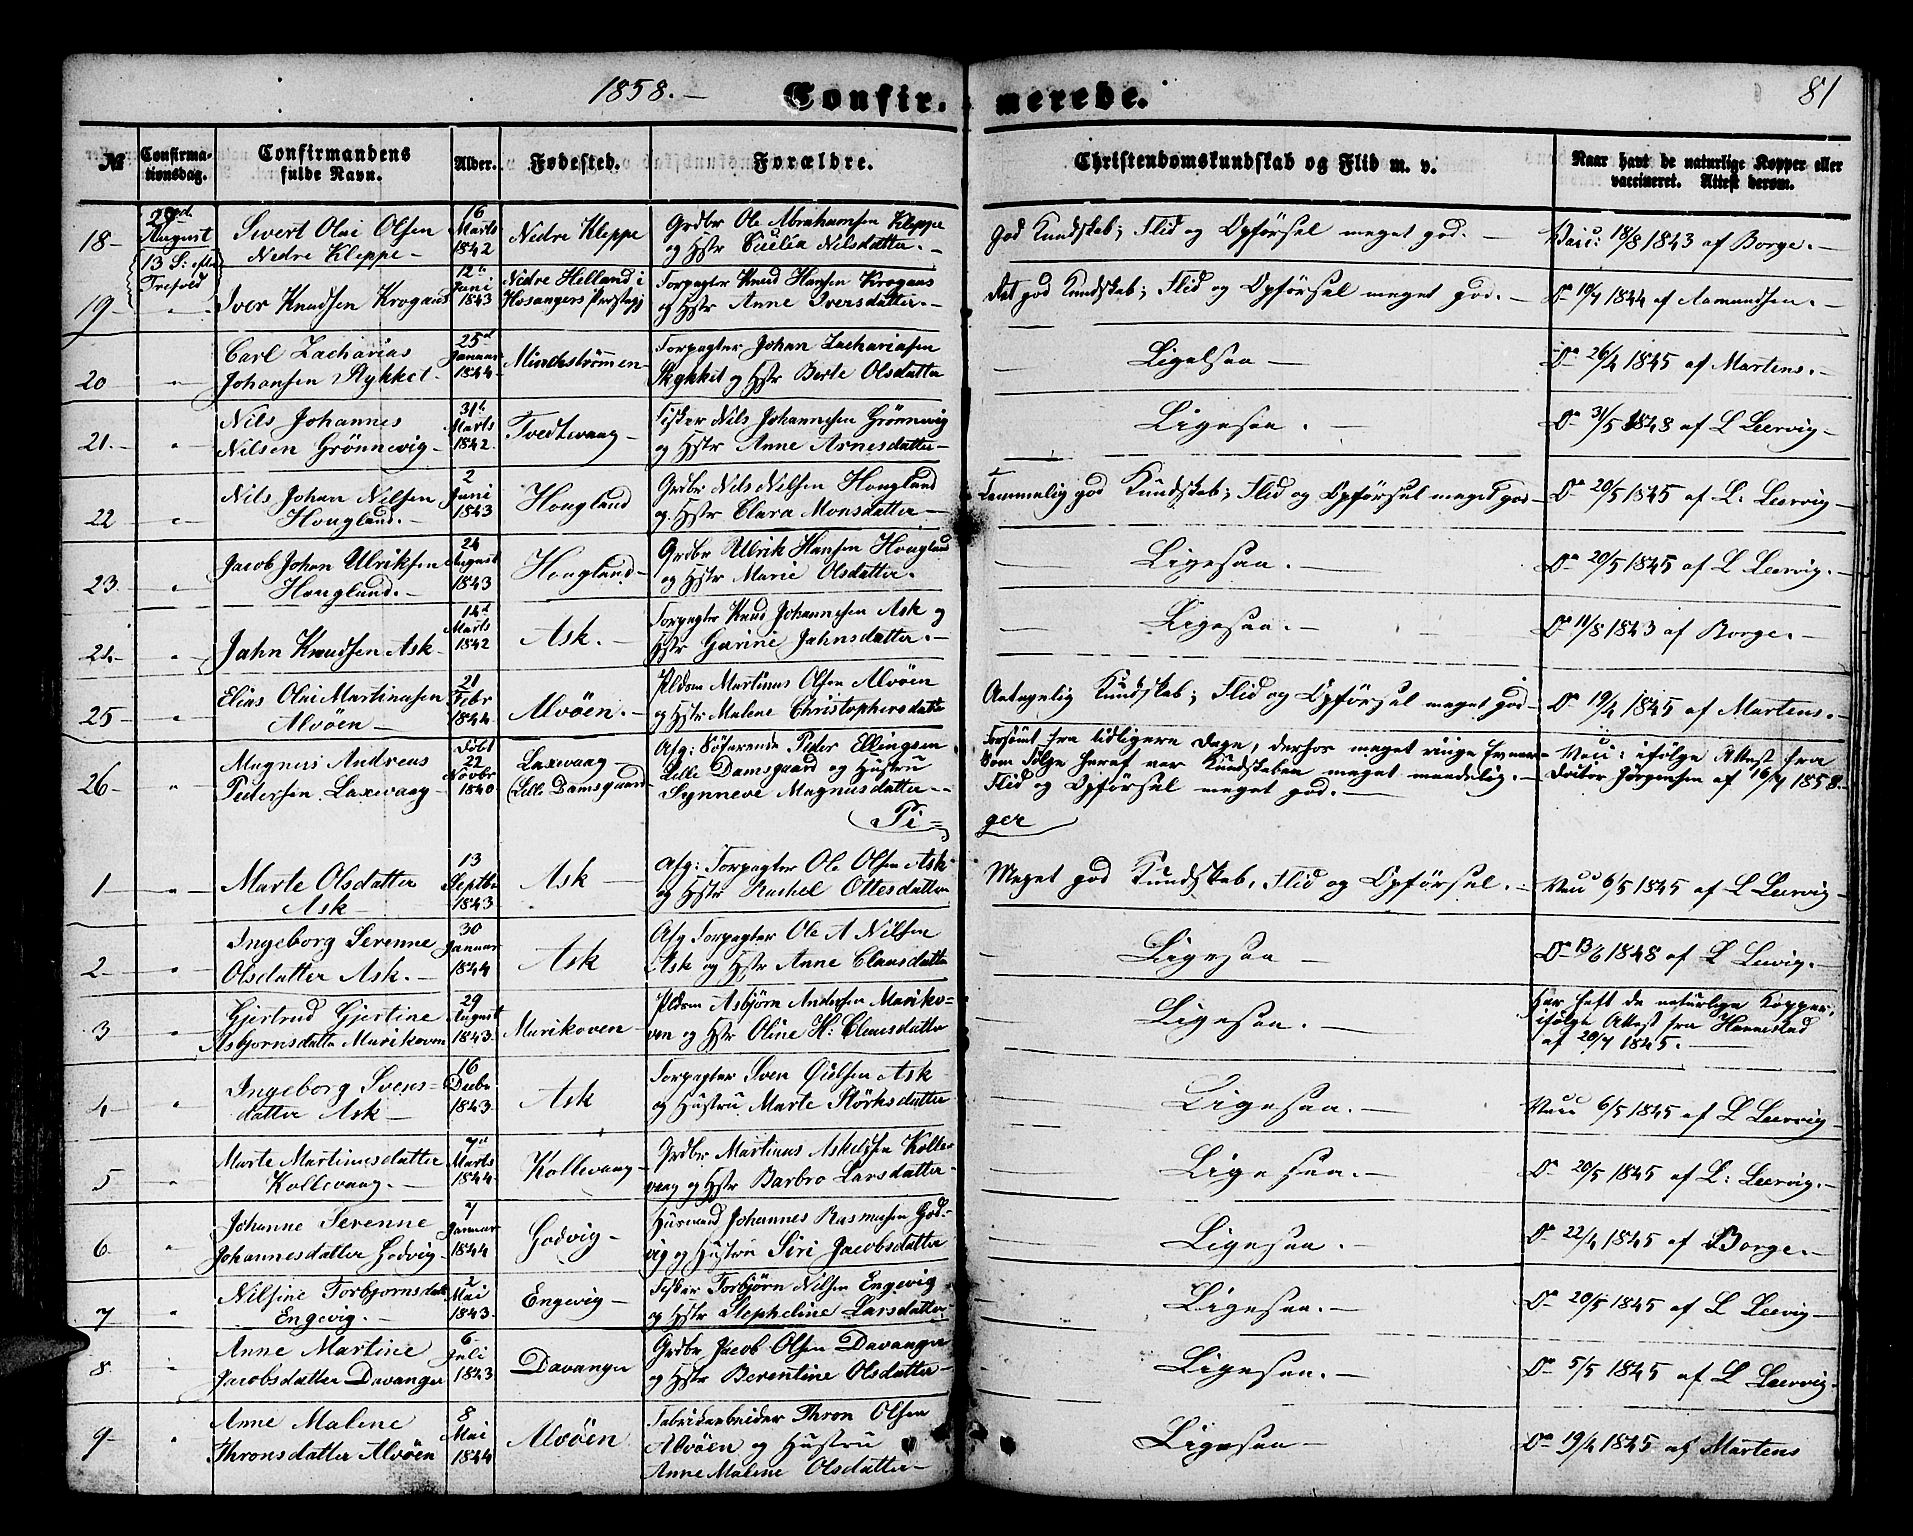 1858.- Confir- merede. 81
№ Confirma-
tionsdag. Confirmandens
fulde Navn. Alder. Fødested. Forældre. Christendomskundskab og Flid m. v. Naar havt de naturlige Kopper eller
vaccineret. Attest derom.
18- 29d
August
13 S: efter
Trefold Sivert Olai Olsen
Nedre Kleppe- 16
Marts
1842 Nedre Kleppe Grdbr Ole Abrahamsen Kleppe
og Hstr Cecilia Nilsdatter.- God Kundskab; Flid og Opførsel meget god.- Vacc: 18/8 1843 af Borge.-
19- " Iver Knudsen Krogaas 12te
Juni
1843 Nedre Helland i
Hosangers Præstegj Forpagter Knud Hansen Krogaas
og Hstr Anne Iversdatter.- Ret god Kundskab; Flid og Opførsel meget god.- Do 10/7 1844 af Aamundsen.-
20 " Carl Zacharias
Johansen Stykket- 25d
Januar
1844 Mindeströmmen- Forpagter Johan Zachariasen
Stykket og Hstr Berte Olsdatter Ligesaa- Do 26/4 1845 af Martens.-
21.- " Nils Johannes
Nilsen Grönnevig- 31te
Marts
1842. Tvedtevaag- Fisker Nils Johannesen Grönnevig
og Hstr Anne Arnesdatter- Ligesaa.- Do 31/5 1843 af L Leervig-
22 " Nils Johan Nilsen
Hougland.- 2
Juni
1843 Hougland Grdbr Nils Nilsen Hougland
og Hstr Clara Monsdatter- Temmelig god Kundskab; Flid og Opførsel meget god- Do 20/5 1845 af L. Leervig-
23. " Jacob Johan Ulriksen
Hougland.- 24
August
1843 Hougland- Grdbr Ulrik Hansen Hougland
og Hstr Marie Olsdatter. Ligesaa.- Do 20/5 1845 af L Leervig.-
24.- " Jahn Knudsen Ask- 14d
Marts
1842 Ask.- Forpagter Knud Johannesen Ask og
Hstr Gurine Jahnsdatter.- Ligesaa.- Do 11/8 1843 af Borge.-
25 " Elias Olai Martinusen
Alvöen- 21
Febr
1844. Alvöen.- Pldsm Martinus Olsen Alvöen
og Hstr Malene Christophersdatte Antagelig Kundskab; Flid og Opførsel meget god- Do 19/4 1845 af Martens.-
26- " Magnus Andreas
Pedersen Laxevaag- Födt
22
Novbr
1840 Laxevaag-
(Lille Damsgaard- Afg: Söfarende Peder Ellingsen
Lille Damsgaard og Hustru
Synneve Magnusdatter-- Forsömt fra tidligere Dage, derhos meget ringe Evner-
Som Følge heraf var Kundskaben meget maadelig.-
Flid og Opførsel meget god.- Vacc: ifølge Attest fra
Doctor Jörgensen af 16/7 1858.-
Pi= ger
1 " Marte Olsdatter
Ask- 13
Septbr
1843 Ask- Afg: Forpagter Ole Olsen Ask
og Hstr Rachel Ottesdatter Meget god Kundskab, Flid og Opførsel.- Vacc 6/5 1845 af L Leervig-
2- " Ingeborg Serenne
Olsdatter Ask.- 30
Januar
1844 Ask Afg Forpagter Ole A Nilsen
Ask og Hstr Anne Clausdatter Ligesaa- Do 13/6 1848 af L Leevig.-
3 " Gjertrud Gjertine
Asbjornsdatte Marikoven 29
August
1843. Marikoven- Pldsm Asbjörn Andersen Mariko=
ven og Hstr Oline H: Clausdatter Ligesaa.- Har haft de naturlige Kopper,
ifølge Attest fra Hannestad
af 20/7 1845.-
4- " Ingeborg Svens-
datter Ask- 16
Decbr
1843. Ask Forpagter Sven Ask
og Hustru Marte Störksdatter Ligesaa.- Vacc 6/5 1845 af L Leervig-
5 " Marte Martinusdatter
Kollevaag.- 7d
Marts
1844 Kollevaag- Grdbr Martinus Askelsen Kolle-
vaag og Hstr Barbro Larsdatter- Ligesaa.- Do 20/5 1845 af L: Leervig.-
6 " Johanne Serenne
Johannesdatter Godvig- 7
Januar
1844 Godvig- Husmand Johannes Rasmusen God-
vig og Hustru Siri Jacobsdatter Ligesaa. Do 22/4 1845 af Borge.-
7 " Nilsine Torbjornsdatt
Engevig.- Mai
1843. Engevig- Fisker Torbjörn Nilsen Engevig
og Hstr Stepheline Larsdatter- Ligesaa.- Do 20/5 1845 af L Leervig-
8 " Anne Martine
Jacobsdatter Davanger 6
Juli
1843 Davanger Grdbr Jacob Olsen Davanger
og Hstr Berentine Olsdatter- Ligesaa.- Do 5/5 1845 af L Leervig-
9- " Anne Malene
Thronsdatter Alvöen 8
Mai
1844 Alvöen Fabrikarbeider Thron Olsen
Alvöen og Hustru
Anne Malene Olsdatter- Ligesaa- Do 19/4 1845 af Martens